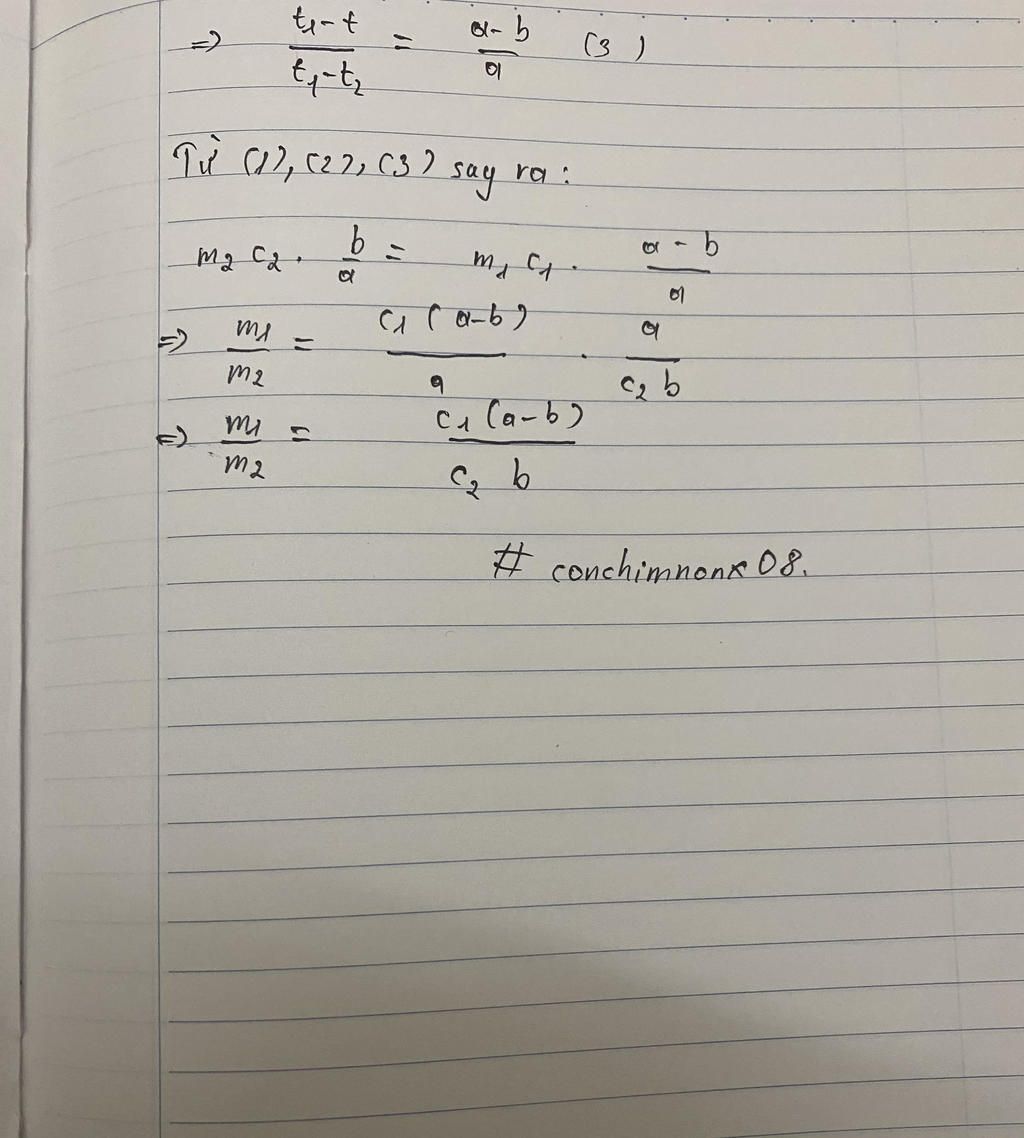 => t₁-t / t₁-t₂ = a-b / a (3)
Từ (1), (2), (3) say ra:
m₂ c₂ . b/a = m₁ c₁ . a-b / a
=> m₁/m₂ = c₁ (a-b) / a . a / c₂ b
=> m₁/m₂ = c₁ (a-b) / c₂ b
# conchimnonx08.